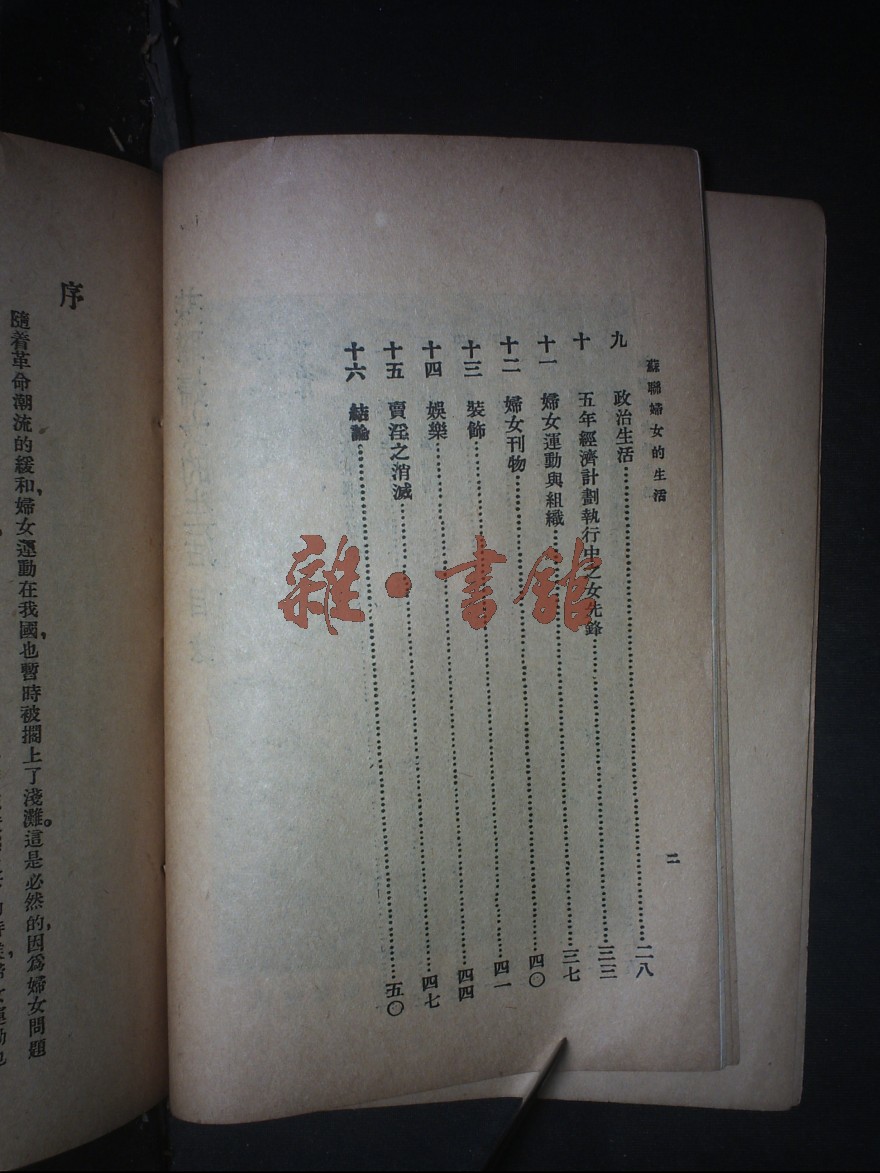 蘇聯婦女的生活
二
九　政治生活……二八
十　五年經濟計劃執行中之女先鋒……三三
十一　婦女運動與組織……三七
十二　婦女刊物……四〇
十三　裝飾……四一
十四　娛樂……四四
十五　賣淫之消滅……四七
十六　結論……五〇
雜·書館
序
隨着革命潮流的緩和，婦女運動在我國，也暫時被擱上了淺灘。這是必然的，因爲婦女問題